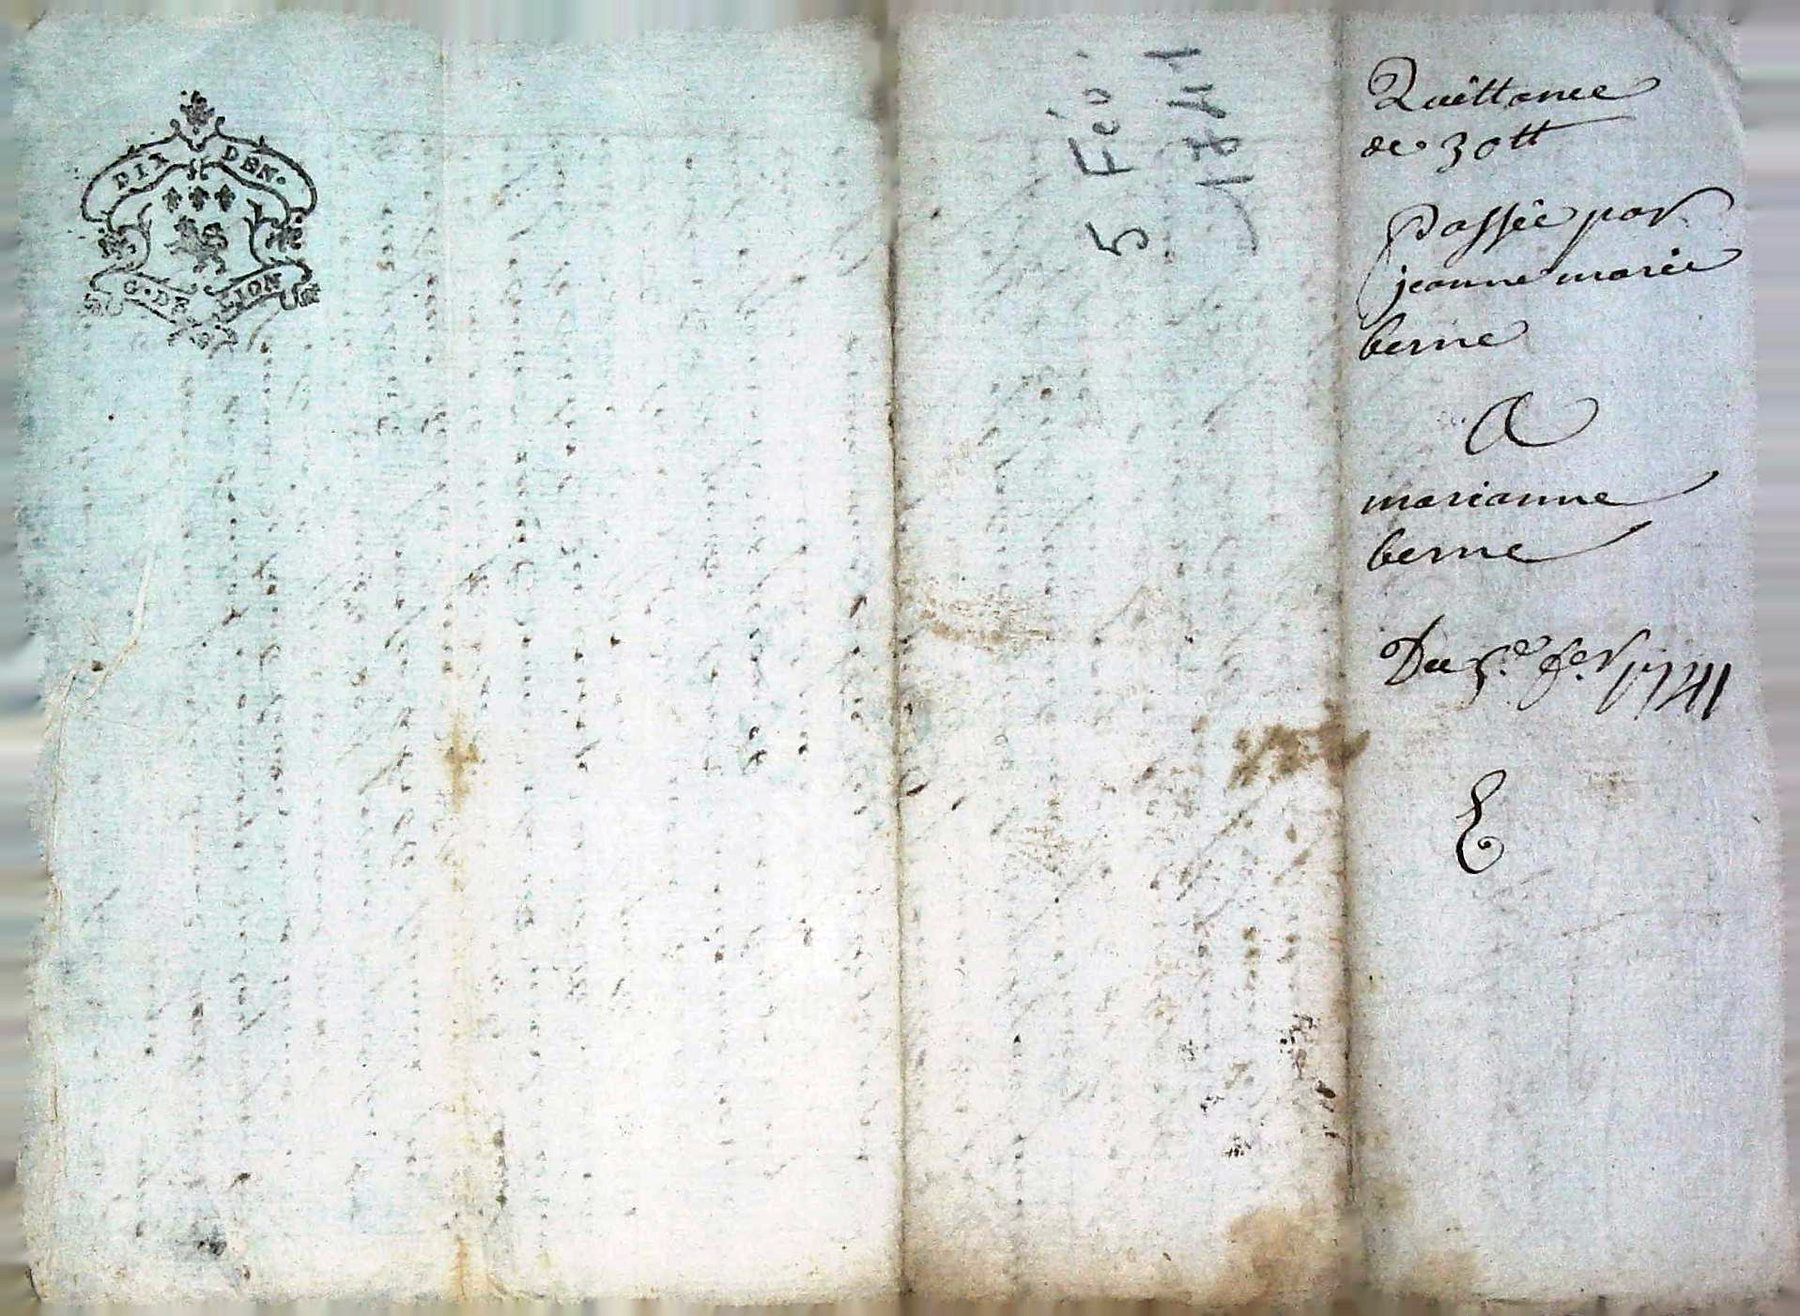 DIX DEN.
G. DE LION
5 Fév.
1741
Quittance
de 30 ₶
Passée par
jeanne marie
berne
A
marianne
berne
Du 5.e fer 1741
E